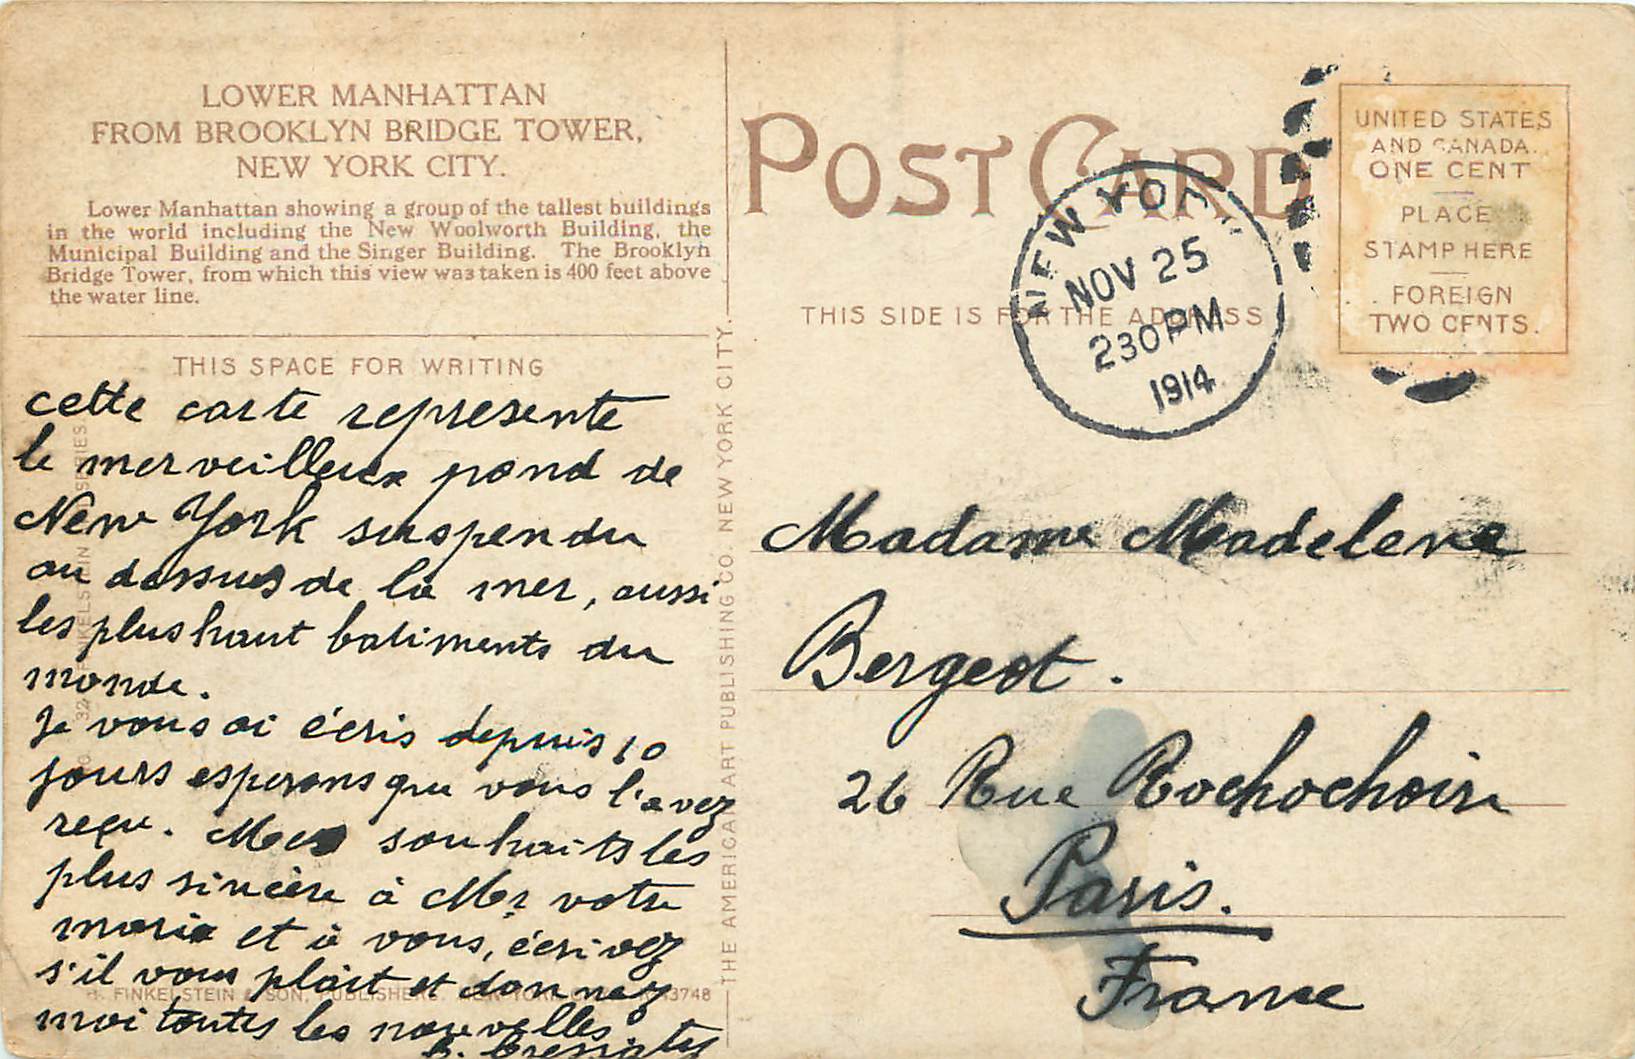 LOWER MANHATTAN
FROM BROOKLYN BRIDGE TOWER,
NEW YORK CITY.
Lower Manhattan showing a group of the tallest buildings
in the world including the New Woolworth Building, the
Municipal Building and the Singer Building. The Brooklyn
Bridge Tower, from which this view was taken is 400 feet above
the water line.
THIS SPACE FOR WRITING
cette carte represente
le merveilleux pond de
New York suspendu
au dessus de la mer, aussi
les plus haut batiments du
monde.
Je vous ai écris depuis 10
jours esperons que vous l'avez
reçu. Mes souhaits les
plus sincère à Mr votre
marie et à vous, écrivez
s'il vous plait et donnez
moi toutes les nouvelles
FINKELSTEIN & SON, PUBLISHERS. NEW YORK 3748
THE AMERICAN ART PUBLISHING CO. NEW YORK CITY.
POST CARD
THIS SIDE IS FOR THE ADDRESS
NEW YORK
NOV 25
230PM
1914
UNITED STATES
AND CANADA.
ONE CENT
PLACE
STAMP HERE
FOREIGN
TWO CENTS.
Madame Madelene
Bergeot.
26 Rue Rochochoir
Paris.
France